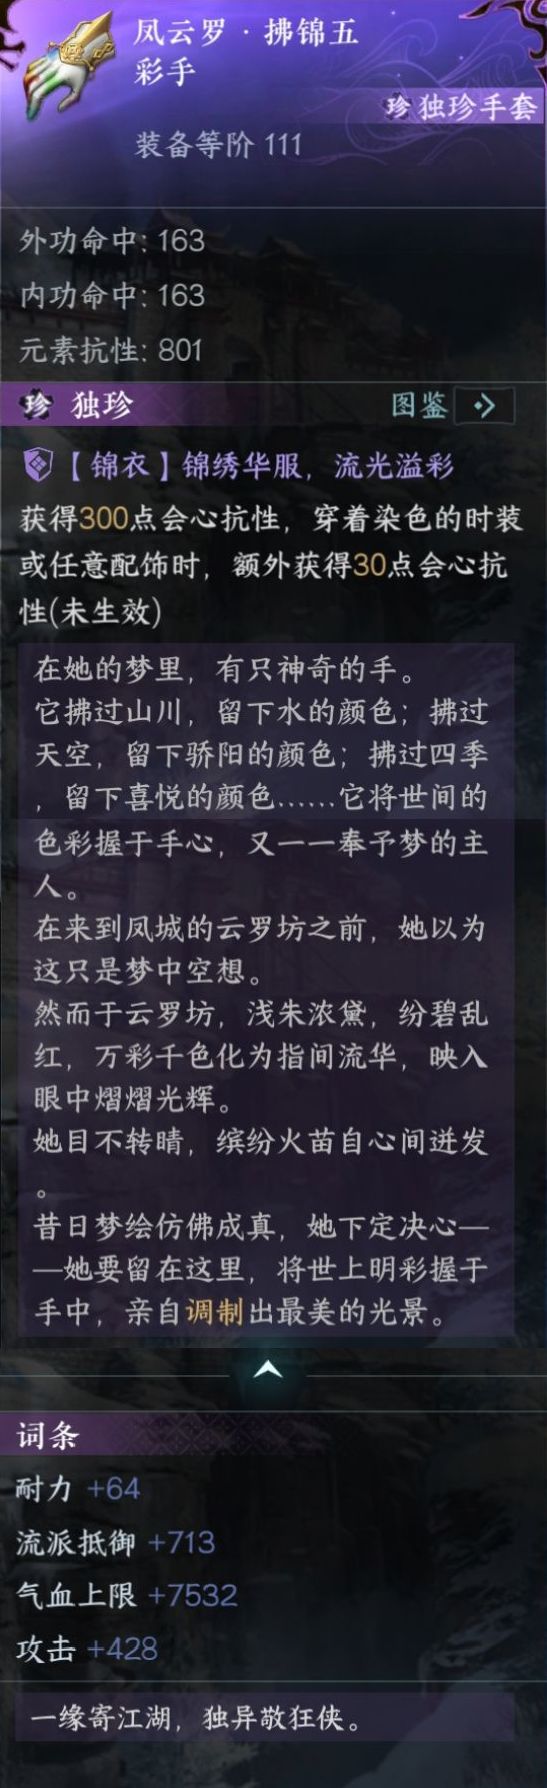 凤云罗·拂锦五
彩手
珍 独珍手套
装备等阶 111
外功命中: 163
内功命中: 163
元素抗性: 801
珍 独珍 图鉴
【锦衣】锦绣华服，流光溢彩
获得300点会心抗性，穿着染色的时装
或任意配饰时，额外获得30点会心抗
性(未生效)
在她的梦里，有只神奇的手。
它拂过山川，留下水的颜色；拂过
天空，留下骄阳的颜色；拂过四季
，留下喜悦的颜色……它将世间的
色彩握于手心，又一一奉予梦的主
人。
在来到凤城的云罗坊之前，她以为
这只是梦中空想。
然而于云罗坊，浅朱浓黛，纷碧乱
红，万彩千色化为指间流华，映入
眼中熠熠光辉。
她目不转睛，缤纷火苗自心间迸发
。
昔日梦绘仿佛成真，她下定决心—
—她要留在这里，将世上明彩握于
手中，亲自调制出最美的光景。
词条
耐力 +64
流派抵御 +713
气血上限 +7532
攻击 +428
一缘寄江湖，独异敬狂侠。